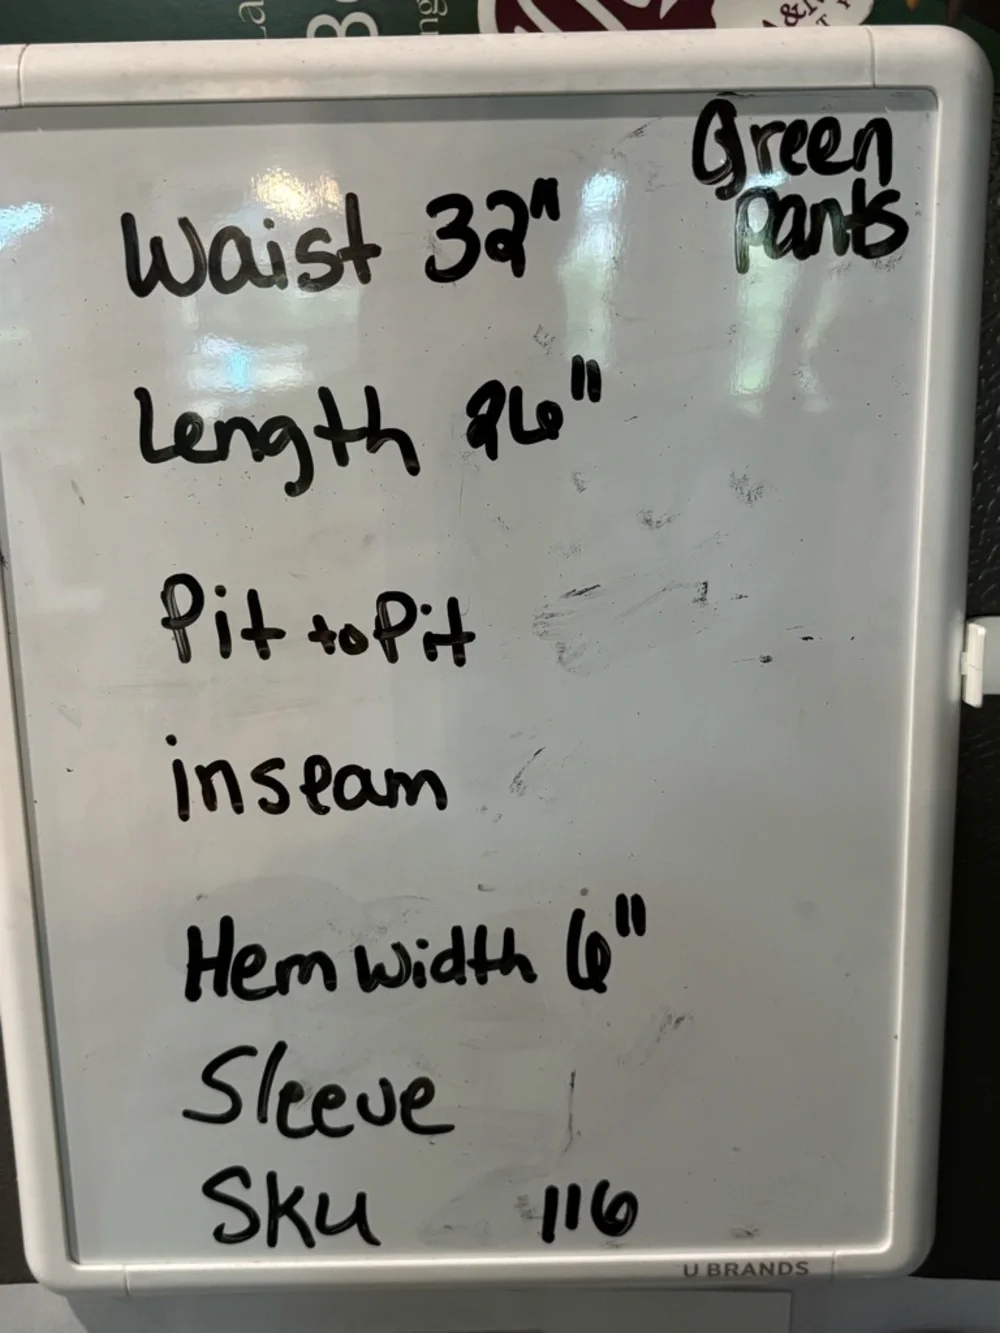 Green
pants
Waist 32"
Length 26"
Pit to Pit
inseam
Hem width 6"
Sleeve
SKU 116
U BRANDS